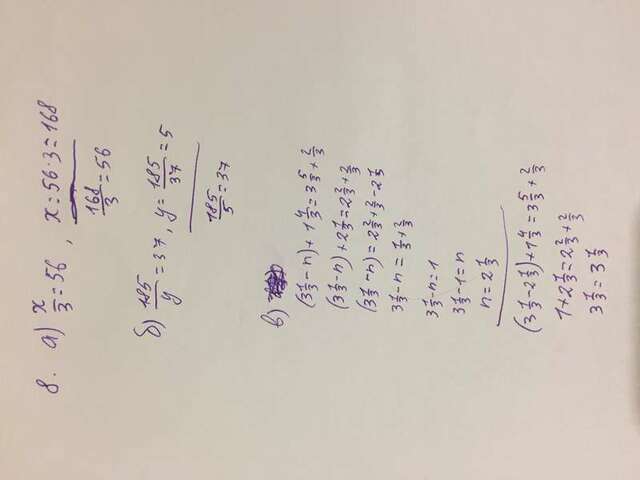 8. а) x/3 = 56 , x = 56 · 3 = 168
168/3 = 56
б) 185/y = 37 , y = 185/37 = 5
185/5 = 37
в)
(3 1/3 - n) + 1 4/3 = 3 5/3 + 2/3
(3 1/3 - n) + 2 1/3 = 2 2/3 + 2/3
(3 1/3 - n) = 2 2/3 + 2/3 - 2 1/3
3 1/3 - n = 1/3 + 2/3
3 1/3 - n = 1
3 1/3 - 1 = n
n = 2 1/3
(3 1/3 - 2 1/3) + 1 4/3 = 3 5/3 + 2/3
1 + 2 1/3 = 2 2/3 + 2/3
3 1/3 = 3 1/3